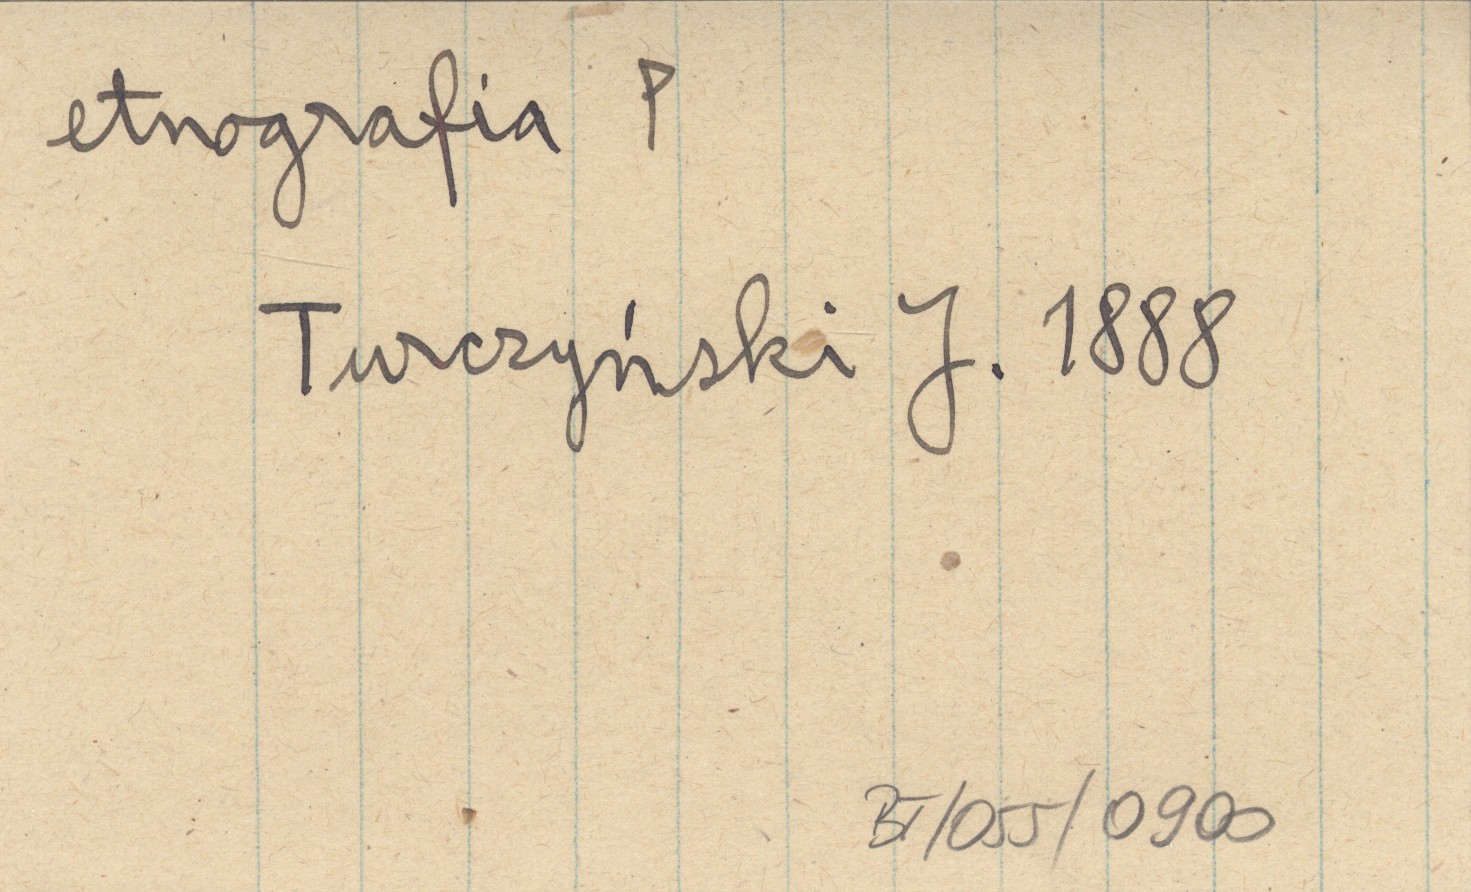 etnografia P
Turczyński J. 1888
BT/055/0900